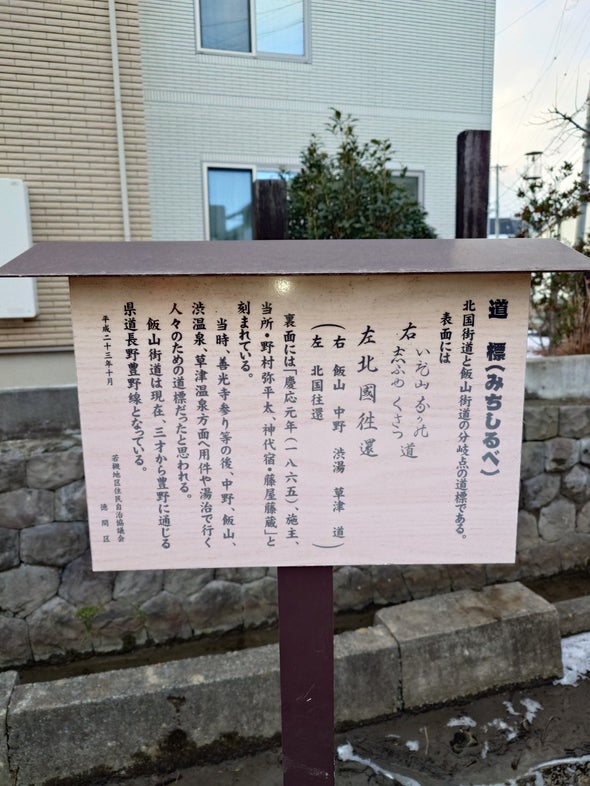 道標(みちしるべ)
北国街道と飯山街道の分岐点の道標である。
表面には
右 いゐ山 なかの
志ふゆ くさつ 道
左 北國往還
(右 飯山 中野 渋湯 草津 道)
(左 北国往還)
裏面には「慶応元年(一八六五)、施主、
当所・野村弥平太、神代宿・藤屋藤蔵」と
刻まれている。
当時、善光寺参り等の後、中野、飯山、
渋温泉、草津温泉方面へ用件や湯治で行く
人々のための道標だったと思われる。
飯山街道は現在、三才から豊野に通じる
県道長野豊野線となっている。
平成二十三年十月
若槻地区住民自治協議会
徳間区